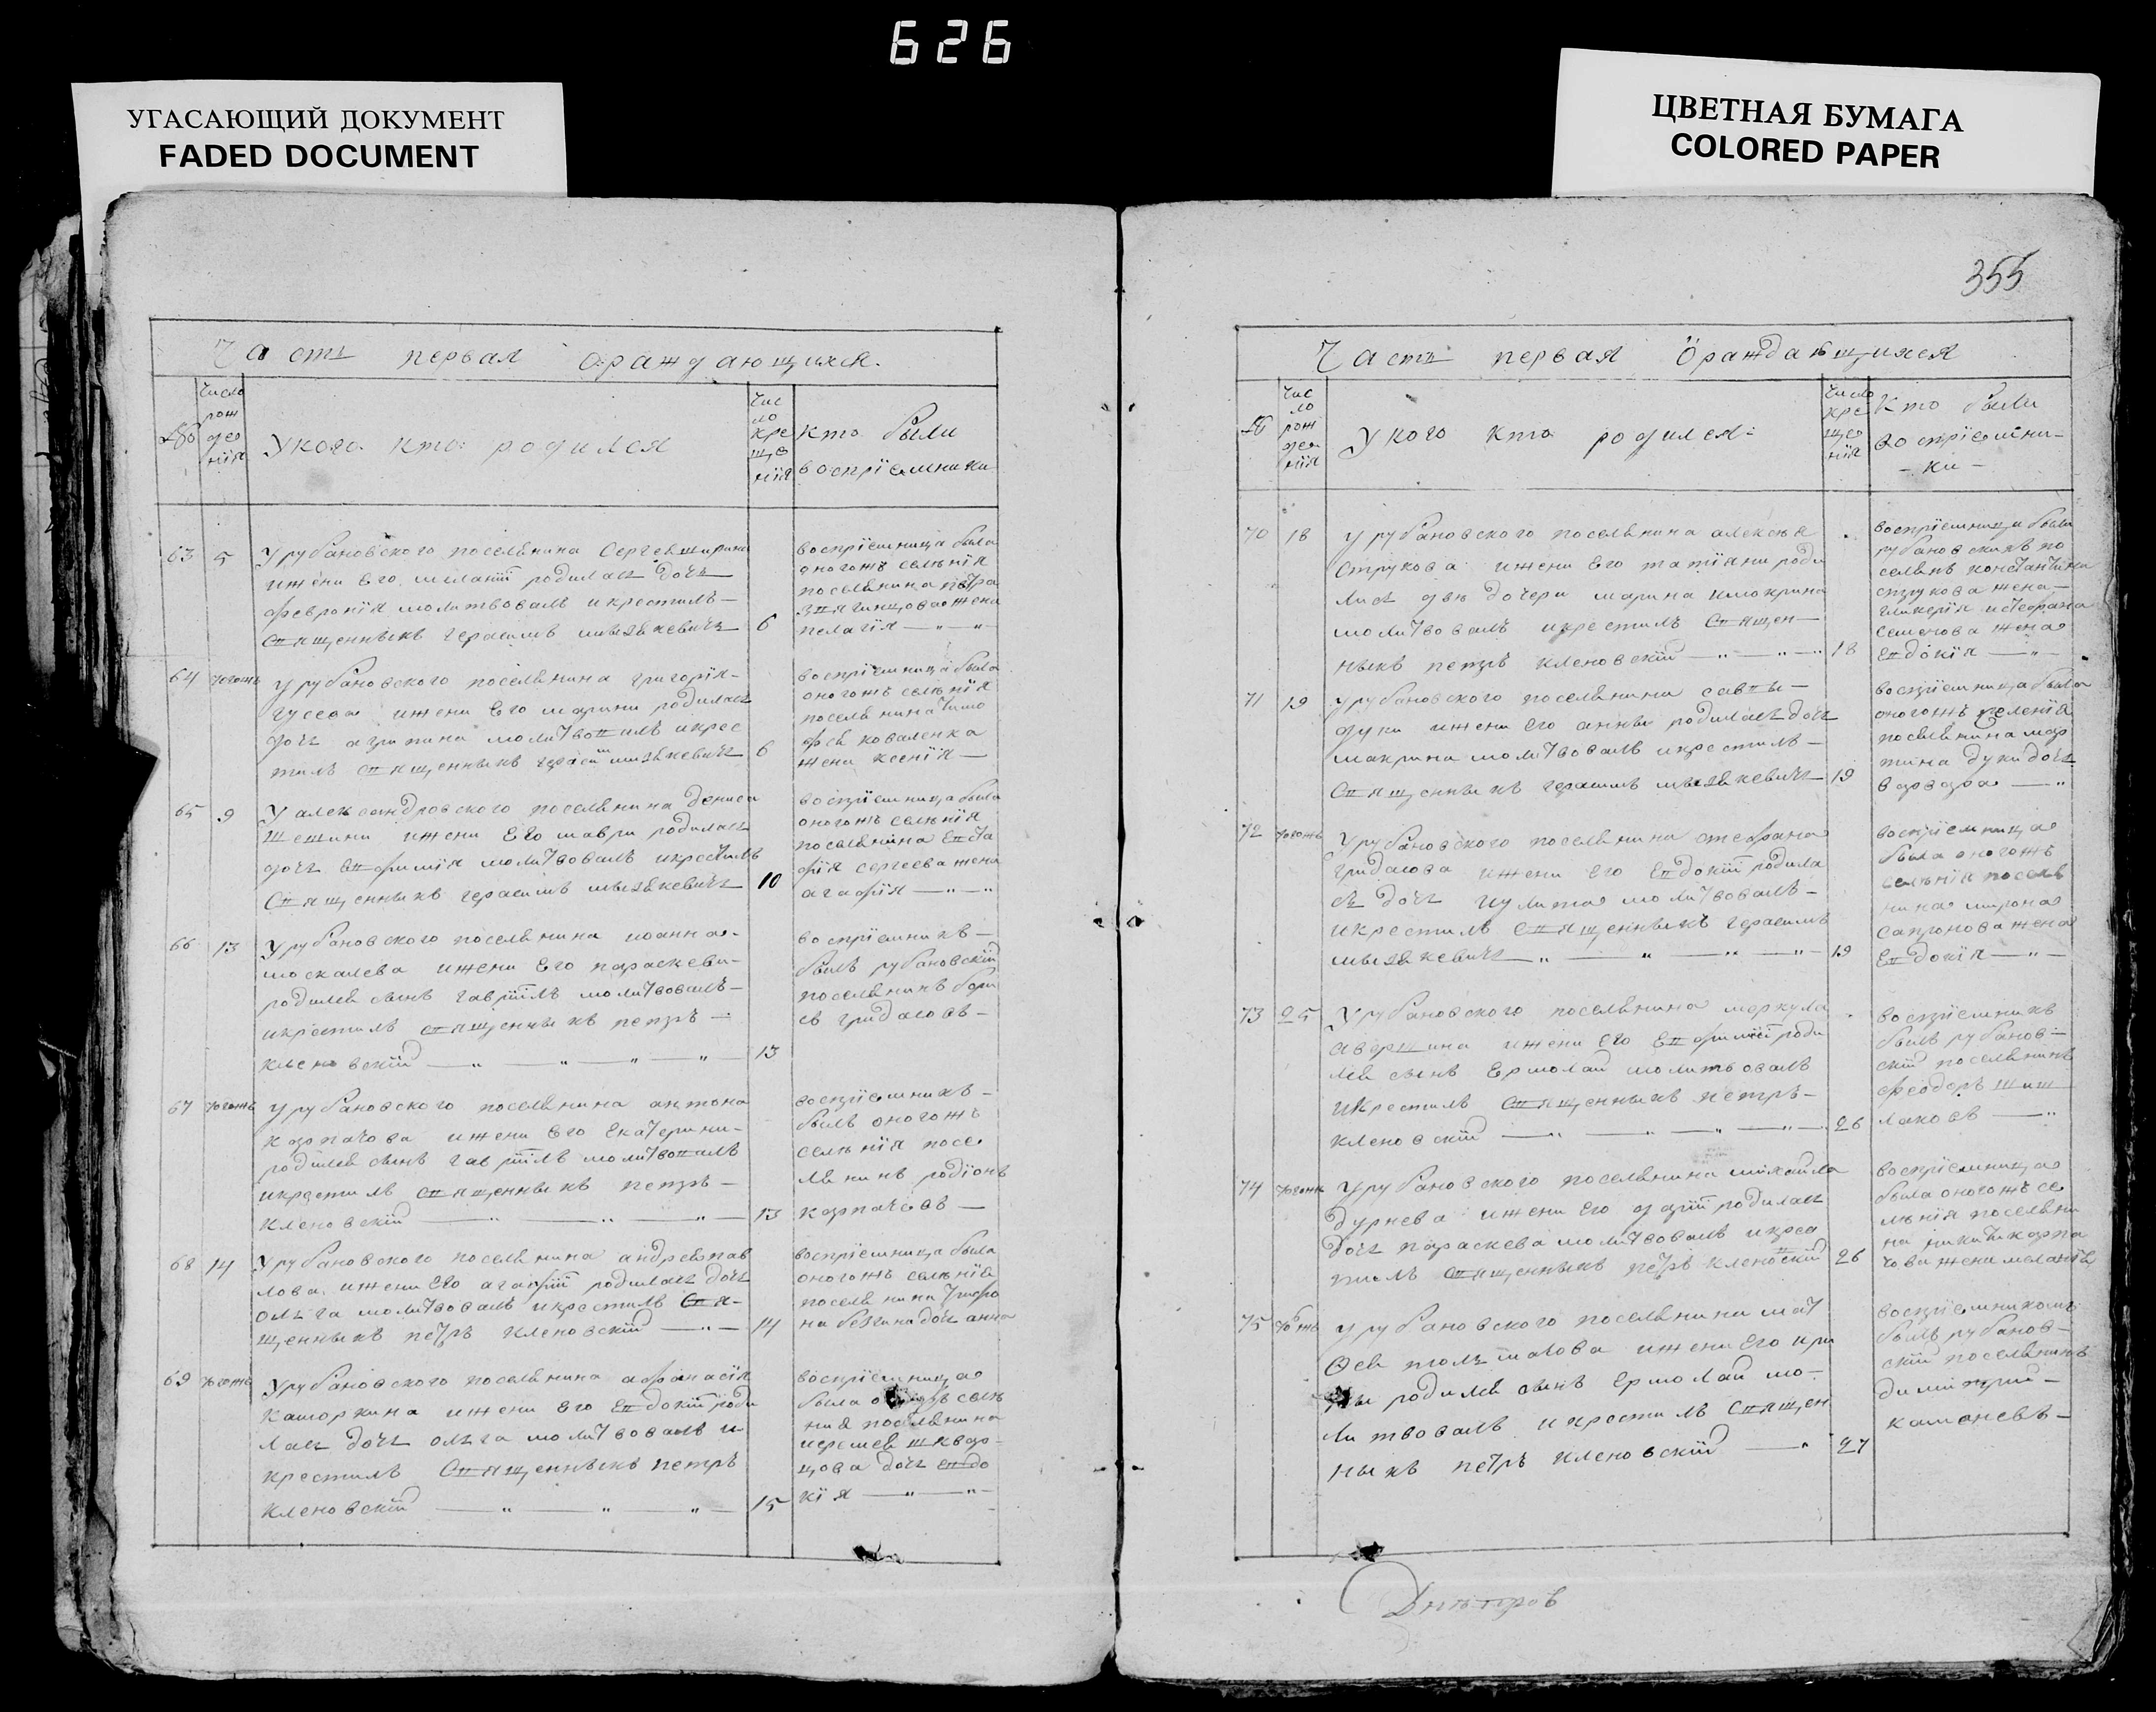 626
УГАСАЮЩИЙ ДОКУМЕНТ
FADED DOCUMENT
ЦВЕТНАЯ БУМАГА
COLORED PAPER
355
Часть первая ораждающихся.
№
Число
рож
де
нія
У кого кто родился
Чис
ло
кре
ще
нія
кто были
воспріемники
63 5
У рубановского поселянина Сергея
и жени его меланіи родилась дочь
февронія молитвовалъ и крестилъ
священникъ герасимъ 6
воспріемница была
оногожъ селѣнія
поселянина петра
жена
пелагія
64 тогожъ
у рубановского поселянина григорія
гусева и жени его марини родилась
дочь агрипина молитвовалъ и крес
тилъ священникъ герасим 6
воспріемница была
оногожъ селѣнія
поселянина тимо
фея коваленка
жена ксенія
65 9
У александровского поселянина дениса
и жени его маври родилась
дочь евфимія молитвовалъ и крестилъ
священникъ герасимъ 10
воспріемница была
оногожъ селѣнія
поселянина евста
фія сергеева жена
агафія
66 13
У рубановского поселянина иоанна
москалева и жени его параскеви
родился сынъ гавріилъ молитвовалъ
и крестилъ священникъ петръ
кленовскій 13
воспріемникъ
былъ рубановскій
поселянинъ бори
съ гридасовъ
67 тогожъ
у рубановского поселянина антона
карпачова и жени его екатерини
родился сынъ гавріилъ молитвовалъ
и крестилъ священникъ петръ
кленовскій 13
воспріемникъ
былъ оногожъ
селѣнія посе
лянинъ родіонъ
карпачовъ
68 14
У рубановского поселянина андрея пав
лова и жени его агафіи родилась дочь
олга молитвовалъ и крестилъ свя
щенникъ петръ кленовскій 14
воспріемница была
оногожъ селѣнія
поселянина трифо
на дочь анна
69 тогожъ
У рубановского поселянина афанасія
каморкина и жени его евдокіи роди
лась дочь олга молитвовалъ и
крестилъ священникъ петръ
кленовскій 15
воспріемница
была селѣ
нія поселянина
дочь евдо
кія
Часть первая ораждающихся
№
Чис
ло
рож
де
нія
У кого кто родился
Число
кре
ще
нія
кто были
воспріемни
ки
70 18
У рубановского поселянина алексѣя
струкова и жени его татіяни роди
лись двѣ дочери марина и мокрина
молитвовалъ и крестилъ священ
никъ петръ кленовскій 18
воспріемници были
рубановскихъ по
селянъ константина
струкова жена
гликерія и стефана
жена
евдокія
71 19
У рубановского поселянина саввы
дуки и жени его анны родилась дочь
макрина молитвовалъ и крестилъ
священникъ герасимъ 19
воспріемница была
оногожъ селенія
поселянина мар
тина дуки дочь
варвара
72 тогожъ
У рубановского поселянина стефана
гридасова и жени его евдокіи родила
сь дочь иулита молитвовалъ
и крестилъ священникъ герасимъ
19
воспріемница
была оногожъ
селѣнія поселя
нина мирона
сапронова жена
евдокія
73 25
У рубановского поселянина меркула
и жени его евфиміи роди
лся сынъ ермолай молитвовалъ
и крестилъ священникъ петръ
кленовскій 26
воспріемникъ
былъ рубанов
скій поселянинъ
феодоръ шиш
лаковъ
74 тогожъ
У рубановского поселянина михаила
дурнева и жени его даріи родилась
дочь параскева молитвовалъ и крес
тилъ священникъ петръ кленовскій 26
воспріемница
была оногожъ се
лѣнія поселяни
на никити карпа
чова жена меланія
75
у рубановского поселянина мат
ѳея и жени его ири
ны родился сынъ ермолай мо
литвовалъ и крестилъ священ
никъ петръ кленовскій 27
воспріемникомъ
былъ рубанов
скій поселянинъ
димитрій